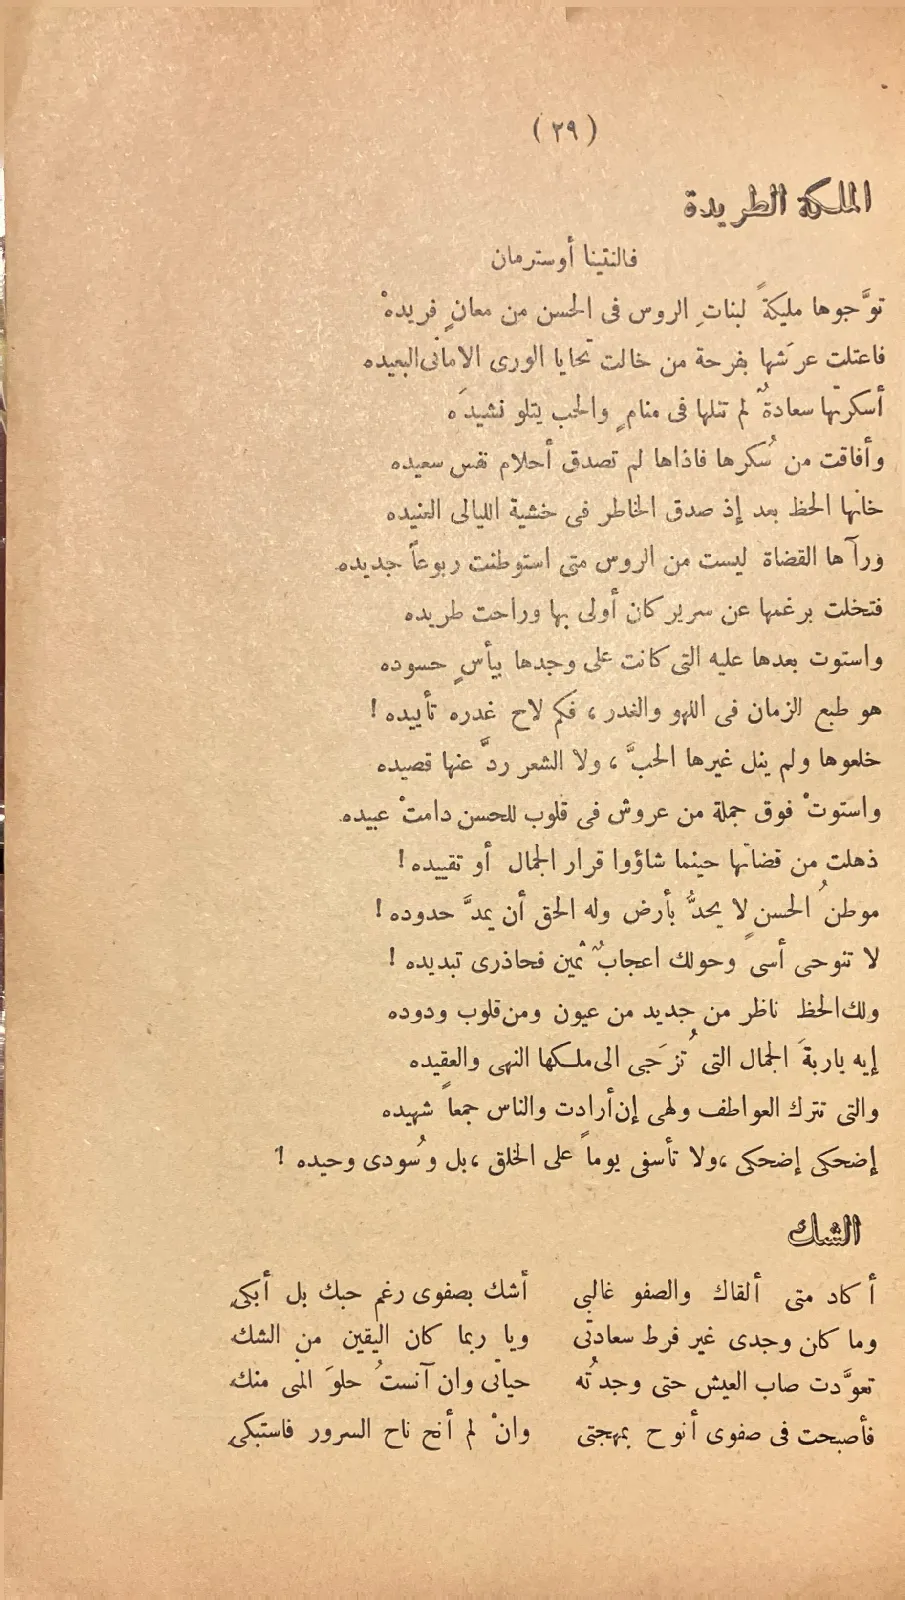 ( ٢٩ )
الملكة الطريدة
فالنتينا أوسترمان
توَّجوها مليكةً لبناتِ الروس فى الحسن من معانٍ فريدهْ
فاعتلت عرَشها بفرحة من خالت تحايا الورى الامانى البعيده
أسكرتها سعادةٌ لم تنلها فى منامٍ والحب يتلو نشيدَه
وأفاقت من سُكرها فاذاها لم تصدق أحلام نفس سعيده
خانها الحظ بعد إذ صدق الخاطر فى خشية الليالى العنيده
ورآها القضاة ليست من الروس متى استوطنت ربوعاً جديده
فتخلت برغمها عن سرير كان أولى بها وراحت طريده
واستوت بعدها عليه التى كانت على وجدها بيأسٍ حسوده
هو طبع الزمان فى اللهو والغدر ، فكم لاح غدره تأييده !
خلعوها ولم ينل غيرها الحبَّ ، ولا الشعر ردَّ عنها قصيده
واستوتْ فوق جملة من عروش فى قلوب للحسن دامتْ عبيده
ذهلت من قضاتها حينما شاؤوا قرار الجمال أو تقييده !
موطنُ الحسنِ لا يحدُّ بأرض وله الحق أن يمدَّ حدوده !
لا تنوحى أسىً وحولك اعجابٌ ثمين فحاذرى تبديده !
ولك الحظ ناظر من جديد من عيون ومن قلوب ودوده
إيه ياربةَ الجمال التى تُزَجى الى ملكها النهى والعقيده
والتى تترك العواطف ولهى إن أرادت والناس جمعاً شهيده
إضحكى إضحكى ، ولا تأسفى يوماً على الخلق ، بل وسُودى وحيده !
الشك
أكاد متى ألقاك والصفو غالبى    أشك بصفوى رغم حبك بل أبكى
وما كان وجدى غير فرط سعادتى    ويا ربما كان اليقين من الشك
تعوَّدت صاب العيش حتى وجدتُه    حياتى وان آنستُ حلوَ المنى منك
فأصبحت فى صفوى أنوح بمهجتى    وانْ لم أنح ناح السرور فاستبكى